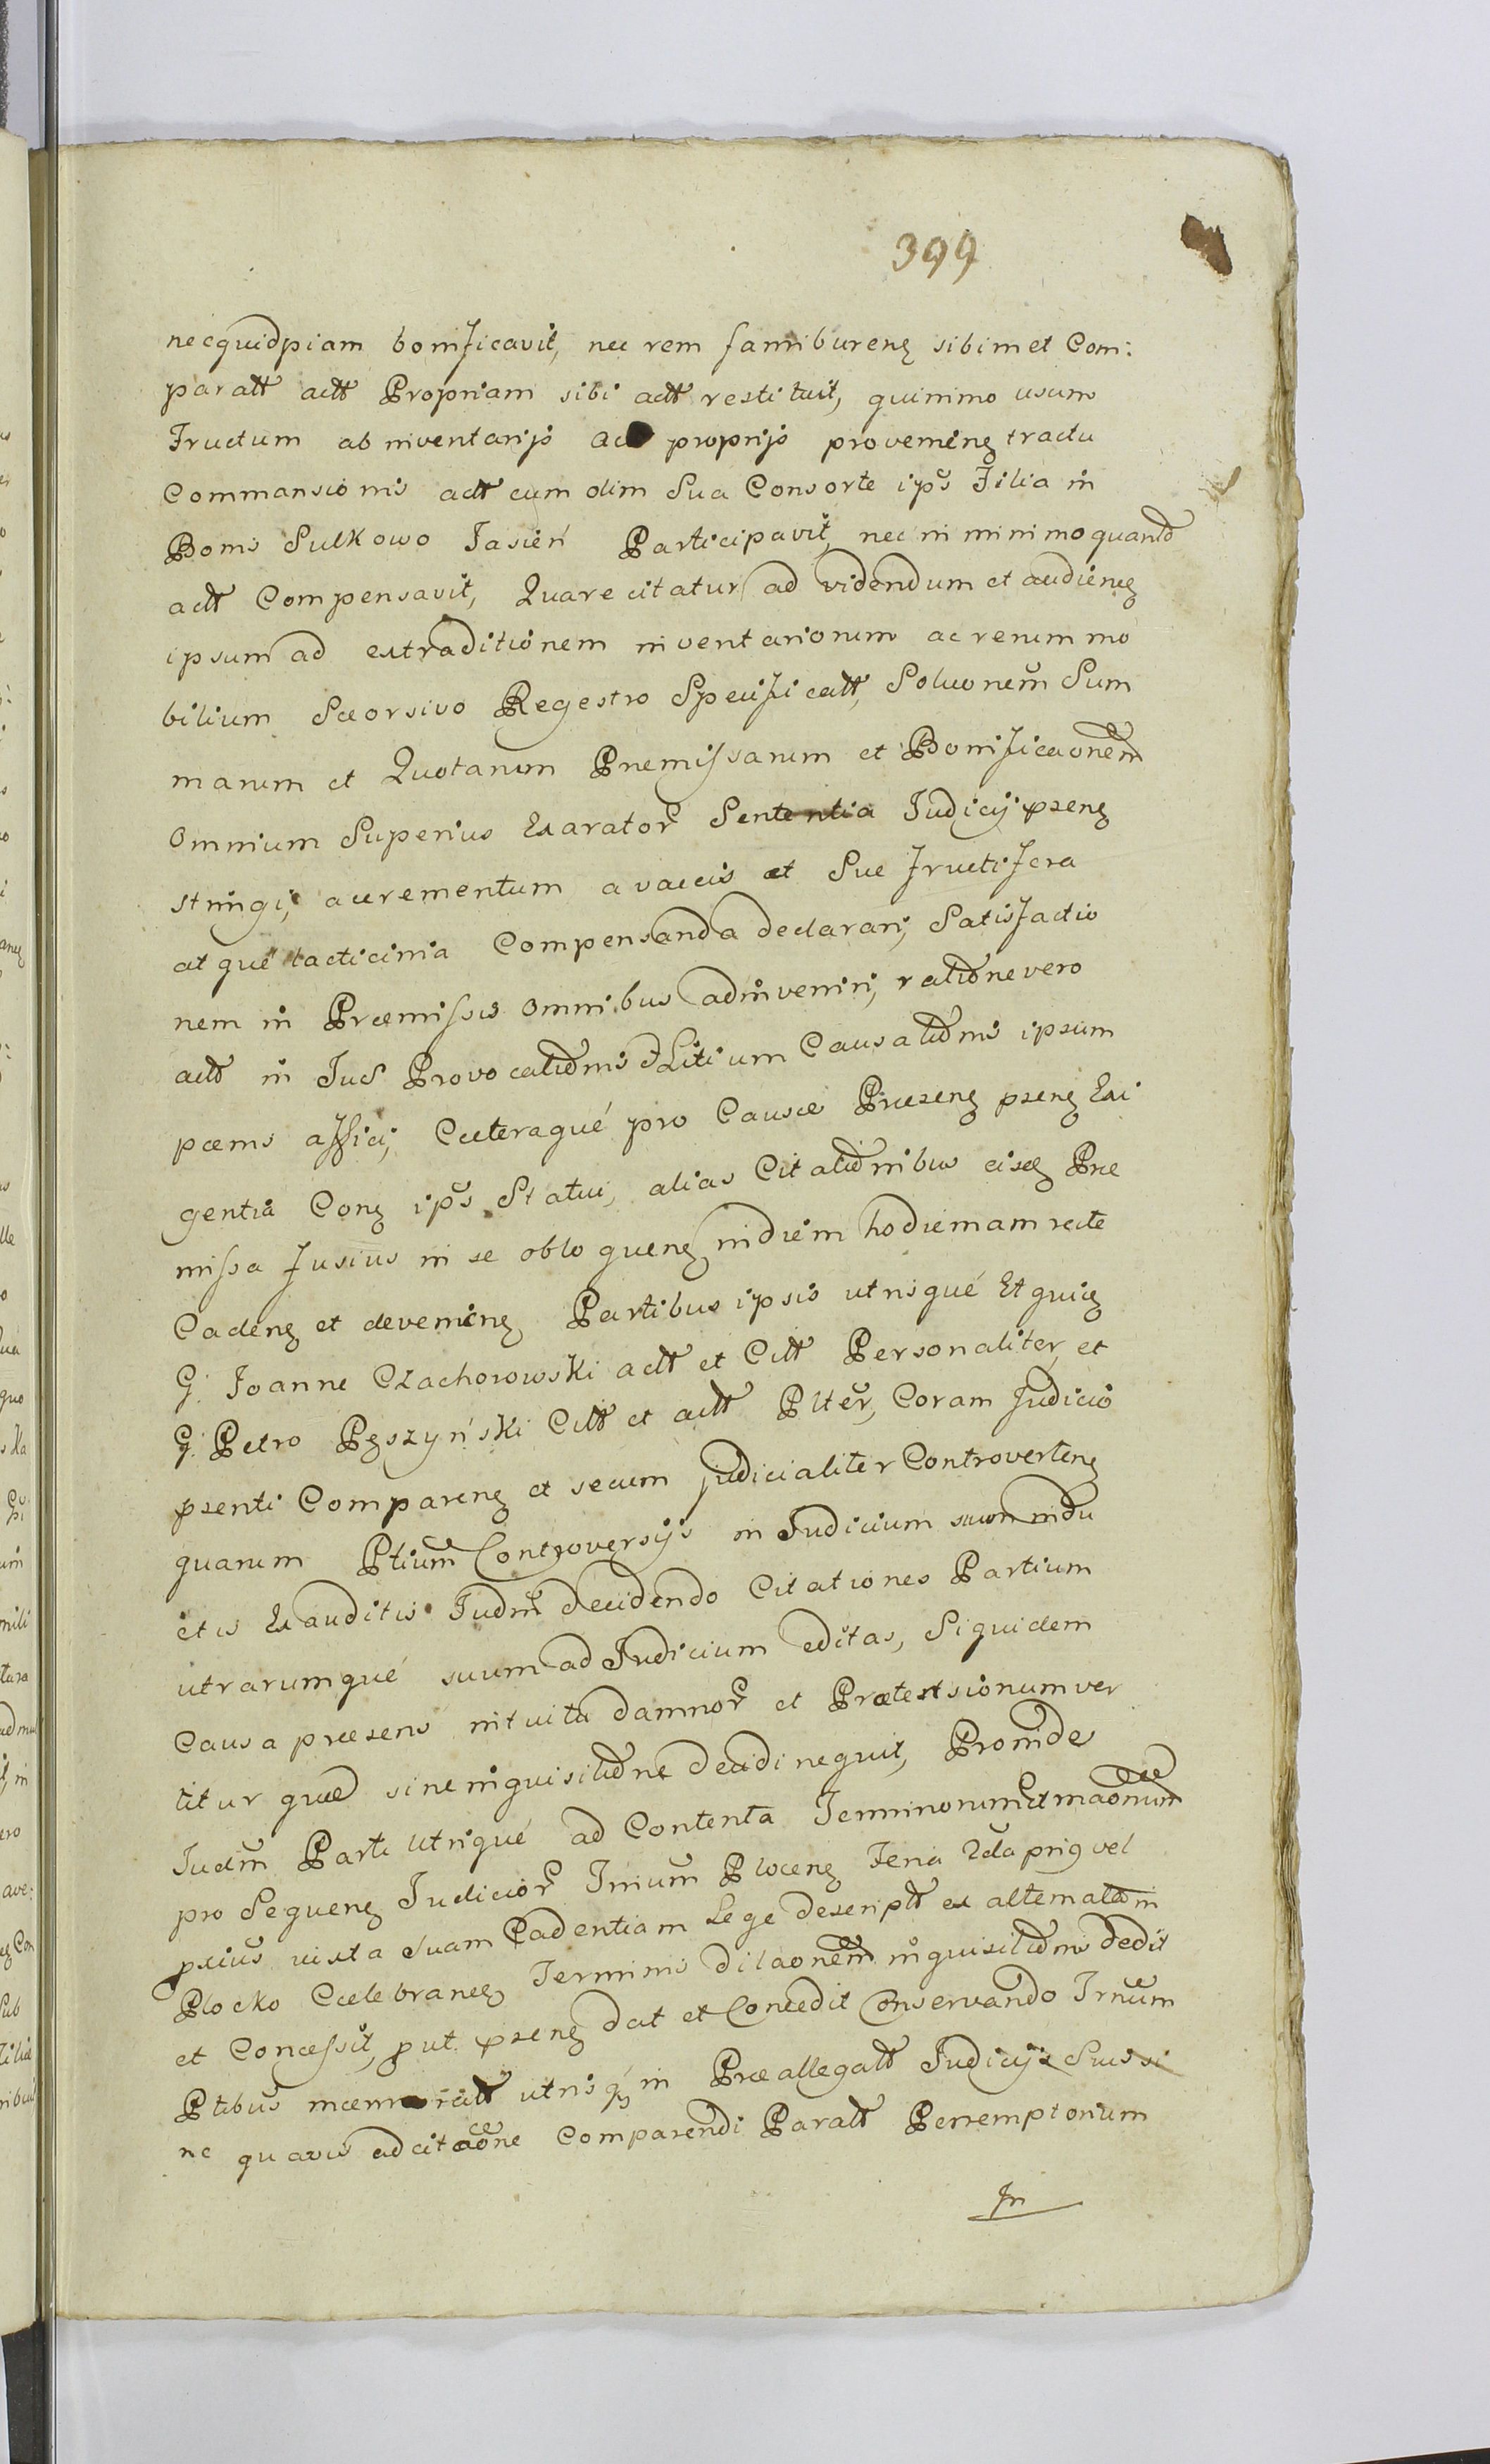 399
necquidpiam bonificavit, nec rem famiburenz sibimet Com:
paratt actt Propriam sibi actt restituit, quinimo usum
Fructum ab inventarijs ac proprijs proveninz tractu
Commansionis actt cum olim Sua Consorte ips Filia in
Bonis Sulkowo Jasień Participavit, nec in minimo quantd
actt Compensavit, Quare citatur ad videndum et audienz
ipsum ad extraditionem inventariorum ac rerum mo
bilium Sceorsivo Regestro Specificatt, Soluonem Sum
marum et Quotarum Premissarum et Bonificaonem
Omnium Superius Exarator Sententia Judicij psenz
stringi, accrementum a vaccis et Sue fructifera
atque lacticinia Compensanda declarari, Satisfactio
nem in Præmissis omnibus adinveniri, ratione vero
actt in Jud Provocationis & Litium Causationis ipsum
pœnis affici, Cæteraque pro Causæ Præsenz psenz Exi
gentia Conz ips Statui, alias Citationibus eisd Præ
missa fusius in se obloquenz in diem hodiernam recte
Cadenz et deveninz Partibus ipsis utrisque Et quid
G. Joanne Czachorowski actt et Citt Personaliter, et
G. Petro Pęszyński Citt et actt Plter, Coram Judicio
psenti Comparenz et secum judicialiter Controvertenz
quarum Ptium Controversijs in Judicium suum indu
ctis Exauditis Judm decidendo Citationes Partium
utrarumque suum ad Judicium editas, Siquidem
Causa præsens intuitu damnor et Prætextsionum ver
titur quæ sine inquisitione decidi nequit, Proinde
Judm Parti Utrique ad Contenta Terminorum Citmaonum
pro Sequenz Judicior Trium Plocenz Feria 2da prig vel
pxius iuxta Suam Cadentiam Lege descriptt ex alternatt in
Plocko Cælebrandz Terminis dilaonem inquisitionis dedit
et Concessit, put psenz dat et Concedit Conservando Trnum
Ptibus mæmoratt utrisq in Præallegatt Judicijs Sui si
ne quavis adcitaone Comparendi Paratt Perremptorium
In